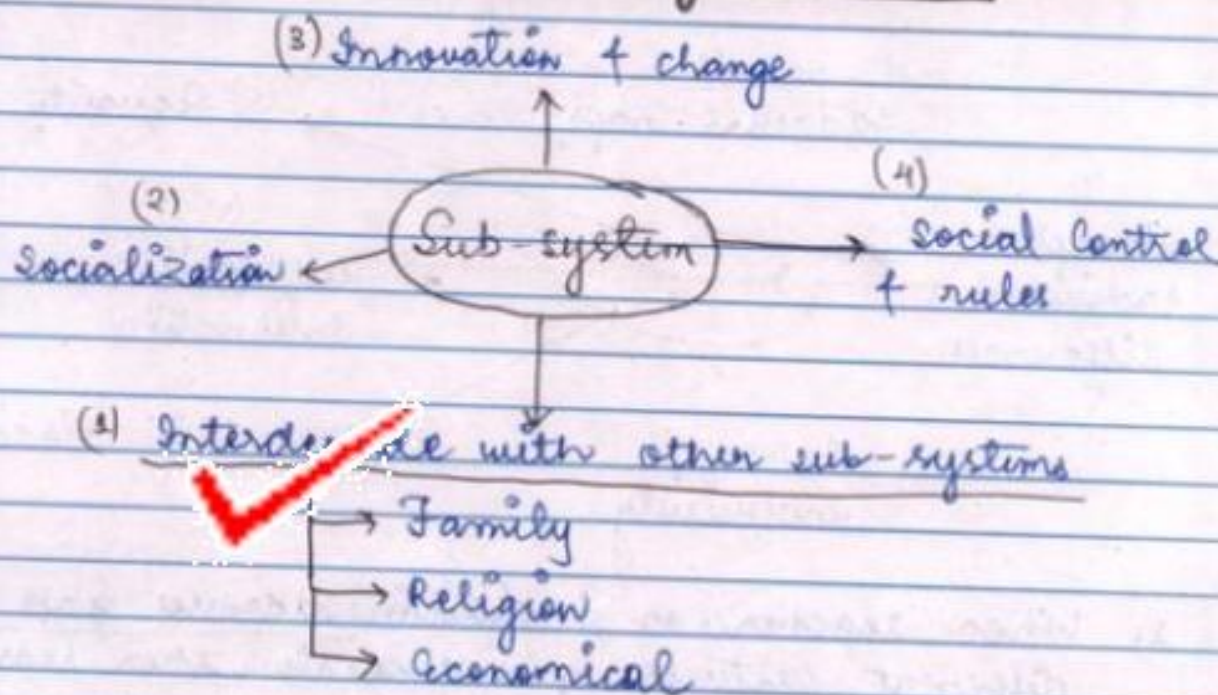 (3) Innovation & change
(2)
Socialization
Sub-system
(4)
Social Control
& rules
(1) with other sub-systems
Family
Religion
Economical